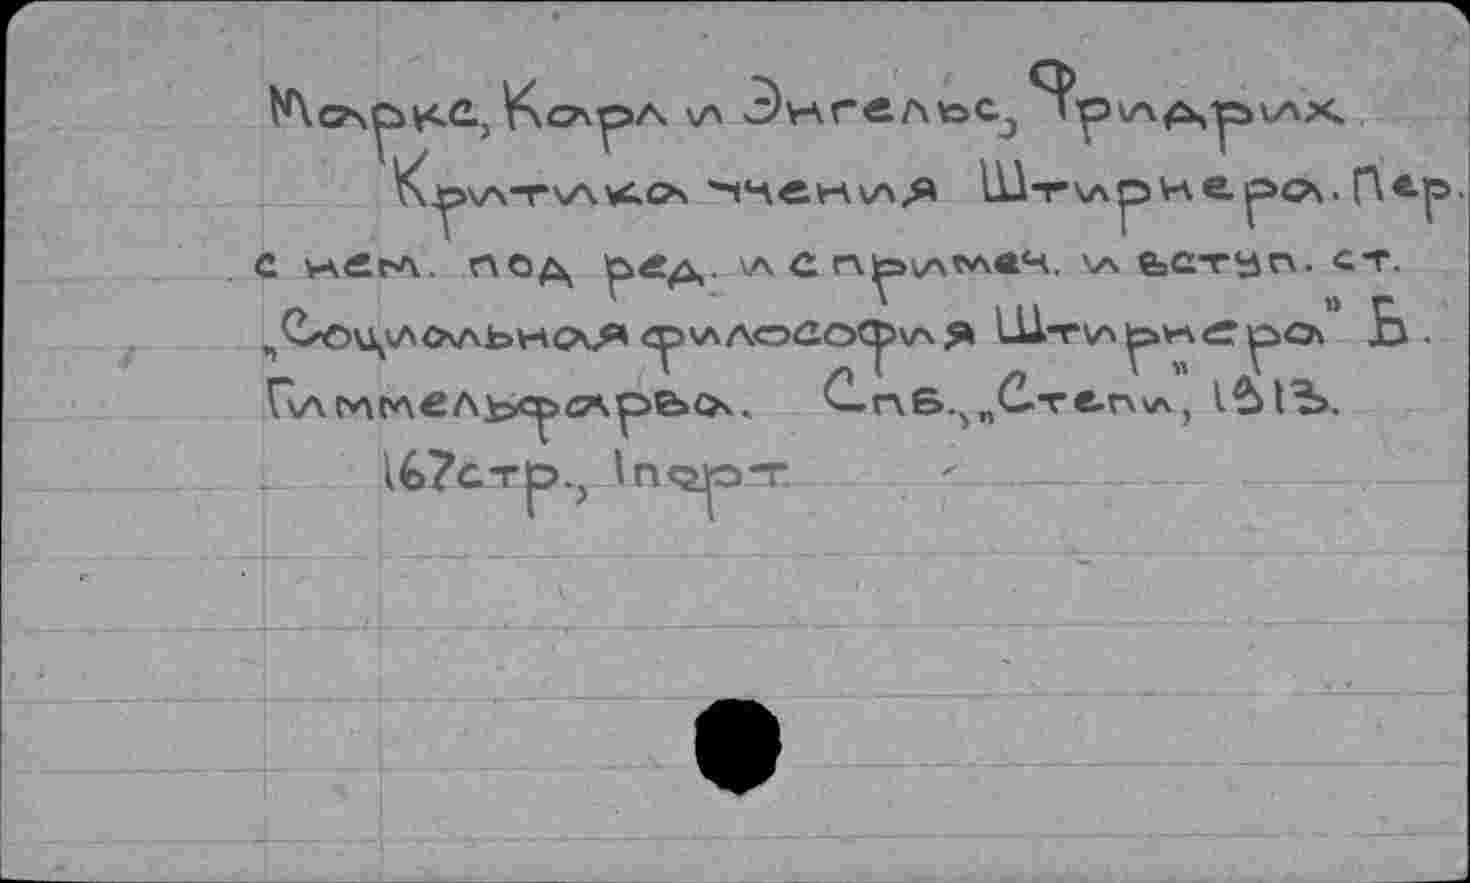 Маркс, Карл и Энгельс, Фридрих
Критика учения Штирнера. Пер.
с нем. под ред. и с примеч. и вступ. ст.
„Социальная философия Штирнера" Б.
Гиммельфарба. Спб., „Степи", 1913.
167стр., 1порт.